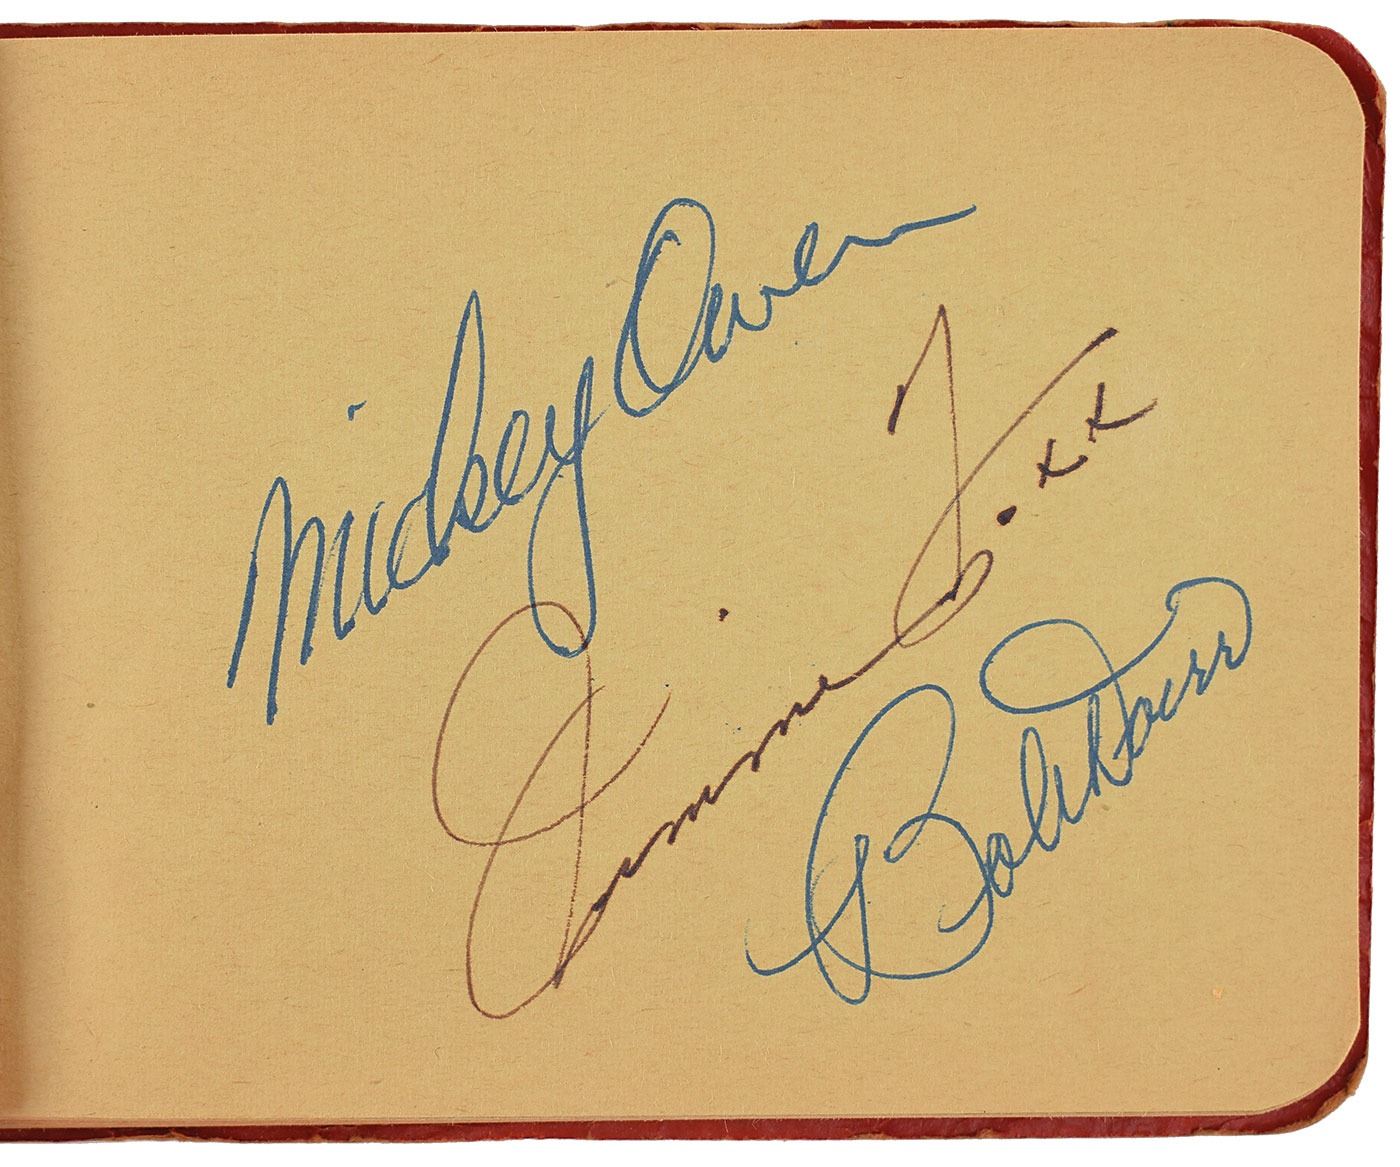 Mickey Owen
Jimmie Foxx
Bob Doerr